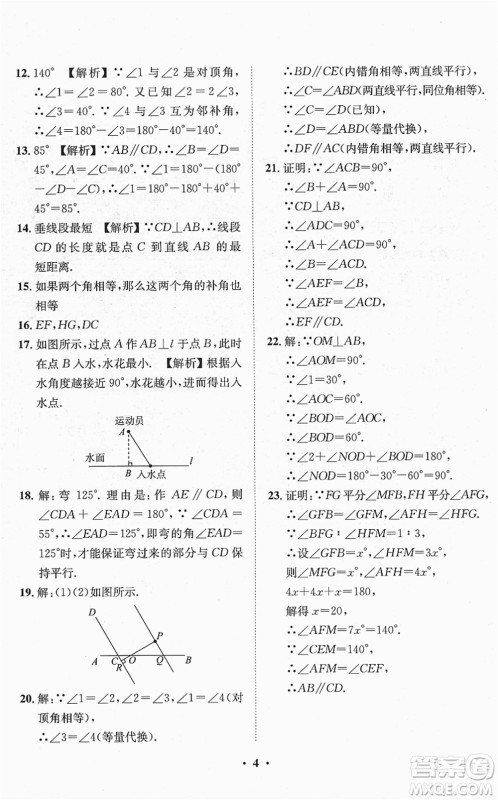 12. 140° 【解析】∵∠1与∠2是对顶角,
∴∠1=∠2=80°. 又已知∠2=2∠3,
∴∠3=40°. ∵∠3与∠4互为邻补角,
∴∠4=180°-∠3=180°-40°=140°.
13. 85° 【解析】∵AB∥CD,∠A=40°,∠D=
45°,∴∠A=∠C=40°. ∴∠1=180°-(180°-
∠C-∠D)=180°-(180°-40°-45°)=40°+
45°=85°.
14. 垂线段最短 【解析】∵CD⊥AB,∴线段
CD的长度就是点C到直线AB的最短距离.
15. 如果两个角相等,那么这两个角的补角也
相等
16. EF,HG,DC
17. 如图所示,过点A作AB⊥l于点B,此时
在点B入水,水花最小. 【解析】根据入
水角度越接近90°,水花越小,进而得出入
水点.
运动员
A
水面
B 入水点
l
18. 解:弯125°. 理由是:作AE∥CD,则
∠CDA+∠EAD=180°. ∴∠EAD=
125°时,∠CDA=55°,即弯的角∠EAD=
125°时,才能保证弯过来的部分与CD保
持平行.
19. 解:(1)(2)如图所示.
D
P
A
C
O
Q
B
R
20. 解:∵∠1=∠2,∠2=∠4,∠1=∠4(对
顶角相等),
∴∠3=∠4(等量代换).
∴BD∥CE(内错角相等,两直线平行),
∴∠ABD=∠C(两直线平行,同位角相等).
∵∠C=∠D(已知),
∴∠D=∠ABD(等量代换),
∴DF∥AC(内错角相等,两直线平行).
21. 证明:∵∠ACB=90°,
∴∠A+∠B=90°.
∵CD⊥AB,
∴∠ADC=90°,
∴∠A+∠ACD=90°,
∴∠B=∠ACD.
∵∠AEF=∠B,
∴∠AEF=∠ACD,
∴EF∥CD.
22. 解:∵OM⊥AB,
∴∠AOM=90°.
∵∠1=30°,
∴∠AOC=60°.
∵∠BOD=∠AOC,
∴∠BOD=60°.
∵∠2+∠NOD=180°-∠BOD,
∴∠NOD=180°-60°-90°=30°.
23. 证明:∵FG平分∠MFB,FH平分∠AFG,
∴∠GFB=∠GFM,∠AFH=∠GFH.
∵∠BFG∶∠HFM=1∶3,
∴∠GFB=x°,∠HFM=3x°,
则∠AFG=∠HFG=4x°,
4x+4x+x=180,
解得x=20,
∴∠AFM=7x°=140°.
∵∠CEF=140°,
∴∠AFM=∠CEF,
∴CD∥AB.
• 4 •